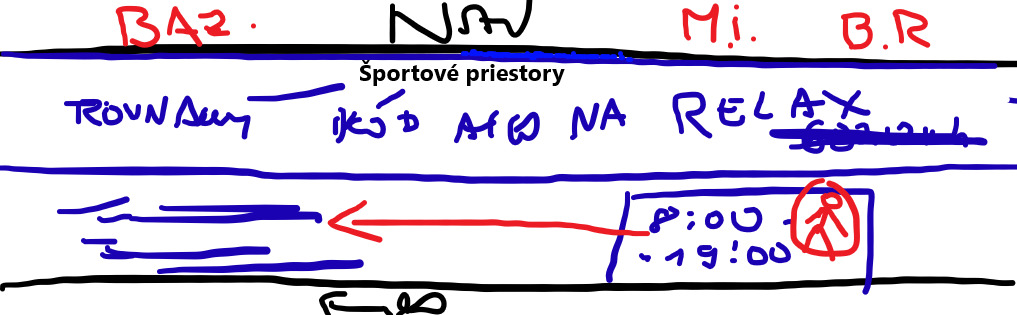 BAZ. NAV M.i. B.R
Športové priestory
ROVNAKÝ KÓD AKO NA RELAX
8:00 -
- 19:00